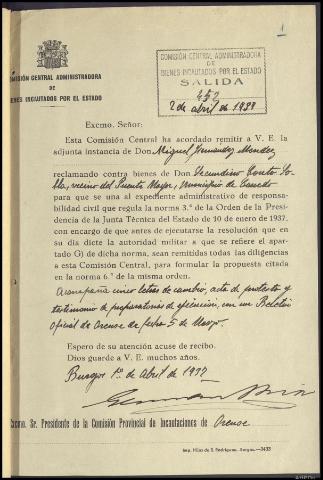 1
COMISIÓN CENTRAL ADMINISTRADORA
DE
BIENES INCAUTADOS POR EL ESTADO
COMISIÓN CENTRAL ADMINISTRADORA
DE
BIENES INCAUTADOS POR EL ESTADO
SALIDA
452
2 de abril de 1938
Excmo. Señor:
Esta Comisión Central ha acordado remitir a V. E. la
adjunta instancia de Don Miguel Fernandez Mendez
reclamando contra bienes de Don Secundino Couto So-
lla, vecino del Puente Mayor, municipio de Canedo
para que se una al expediente administrativo de responsa-
bilidad civil que regula la norma 3.ª de la Orden de la Presi-
dencia de la Junta Técnica del Estado de 10 de enero de 1937,
con encargo de que antes de ejecutarse la resolución que en
su día dicte la autoridad militar a que se refiere el apar-
tado G) de dicha norma, sean remitidas todas las diligencias
a esta Comisión Central, para formular la propuesta citada
en la norma 6.ª de la misma orden.
Acompaña cinco letras de cambio, acta de protesto y
testimonio de preparatorias de ejecución, con un Boletin
oficial de Orense de fecha 5 de Marzo.
Espero de su atención acuse de recibo.
Dios guarde a V. E. muchos años.
Burgos 1º de Abril de 1937
Excmo. Sr. Presidente de la Comisión Provincial de Incautaciones de Orense
Imp. Hijos de S. Rodríguez.-Burgos.-3433